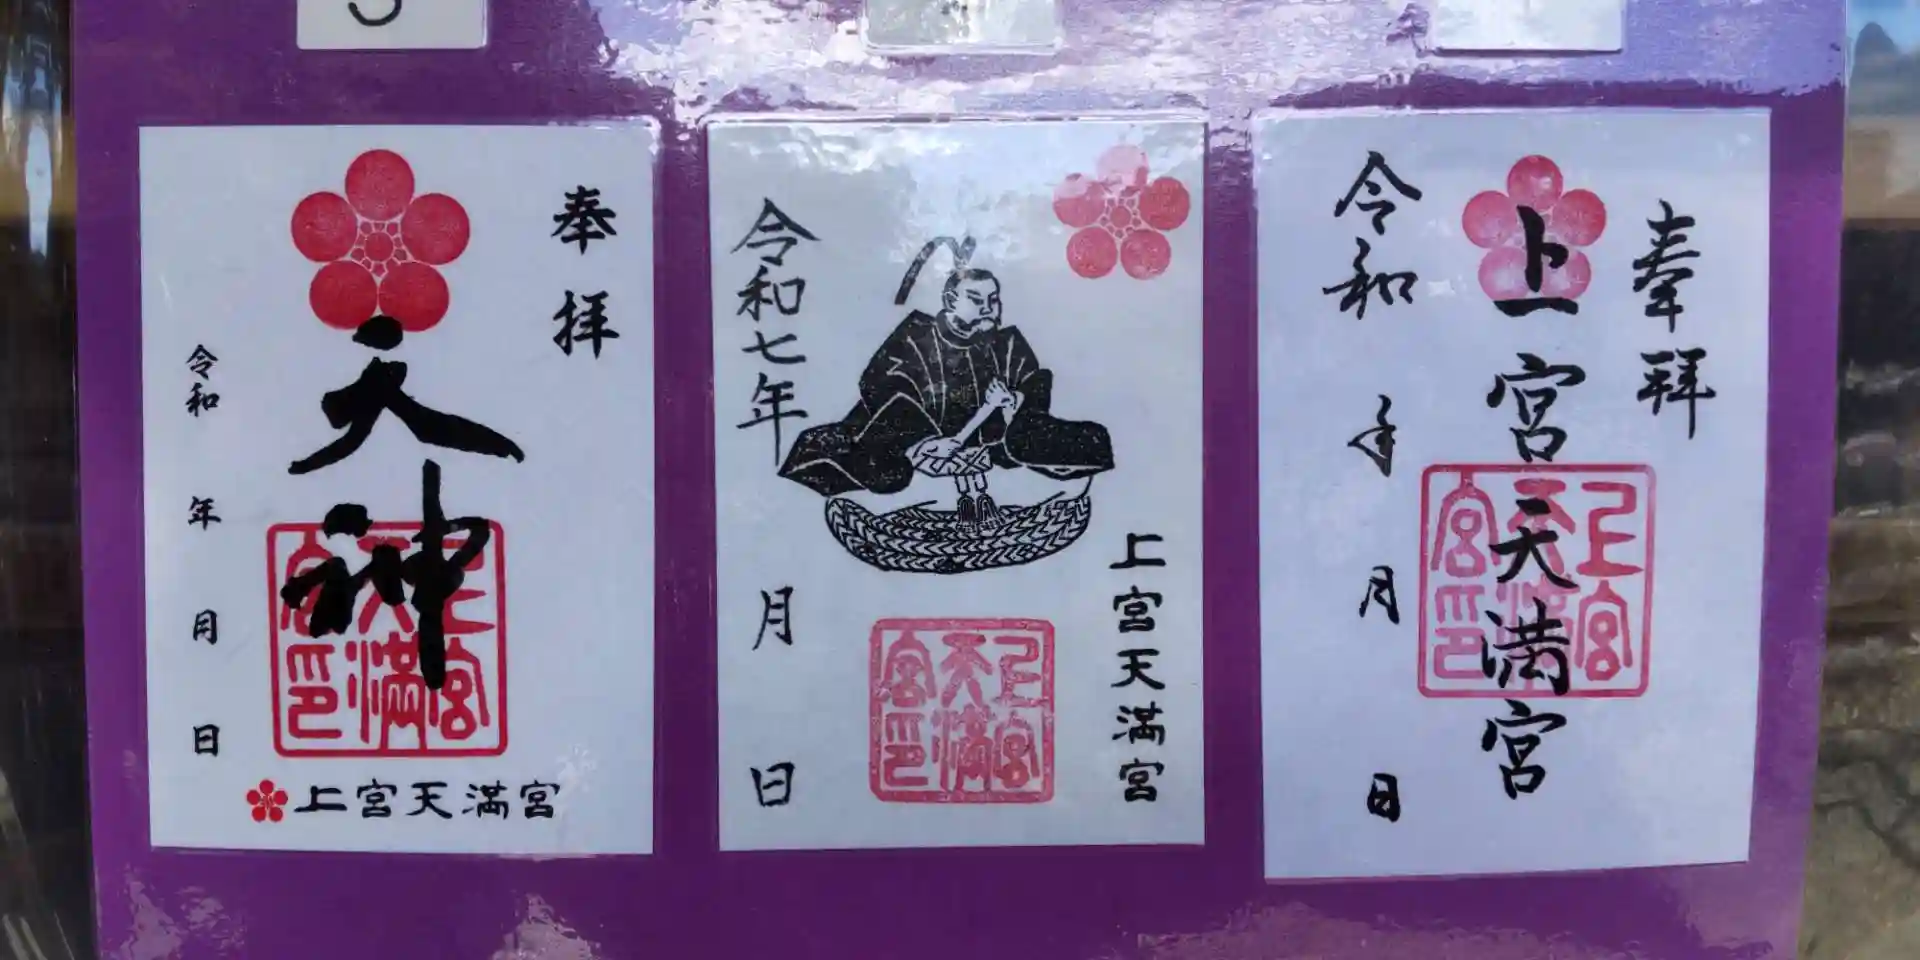 奉拝
天神
令和 年 月 日
上宮天満宮印
上宮天満宮
令和七年 月 日
上宮天満宮
上宮天満宮印
奉拝
上宮天満宮
上宮天満宮印
令和 年 月 日